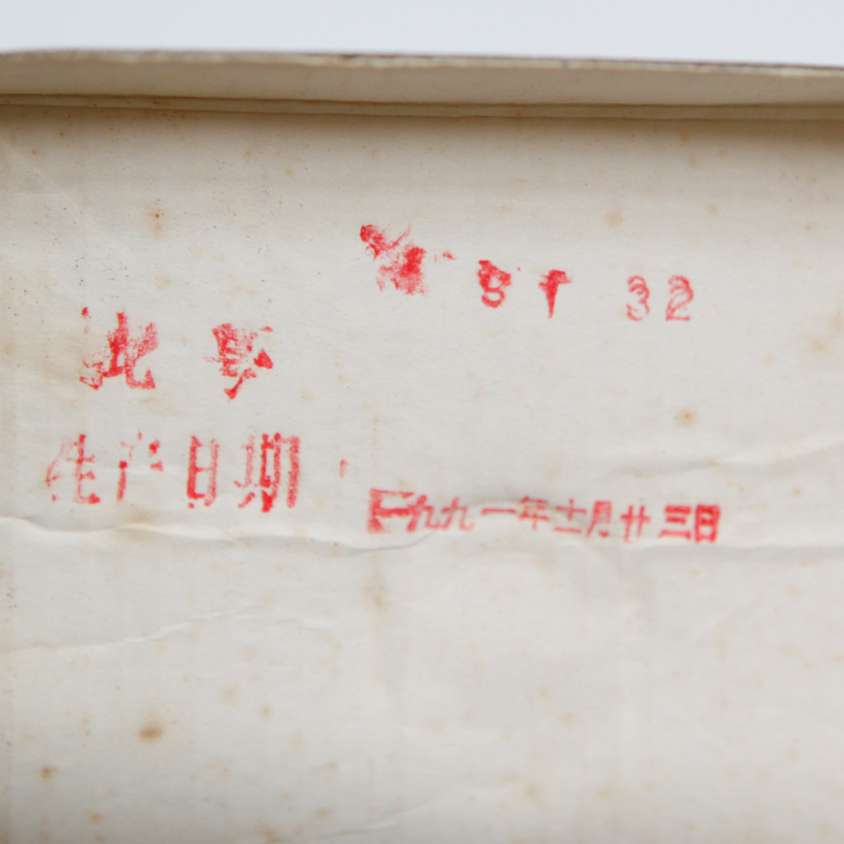 32
批号
生产日期 一九九一年十一月廿三日